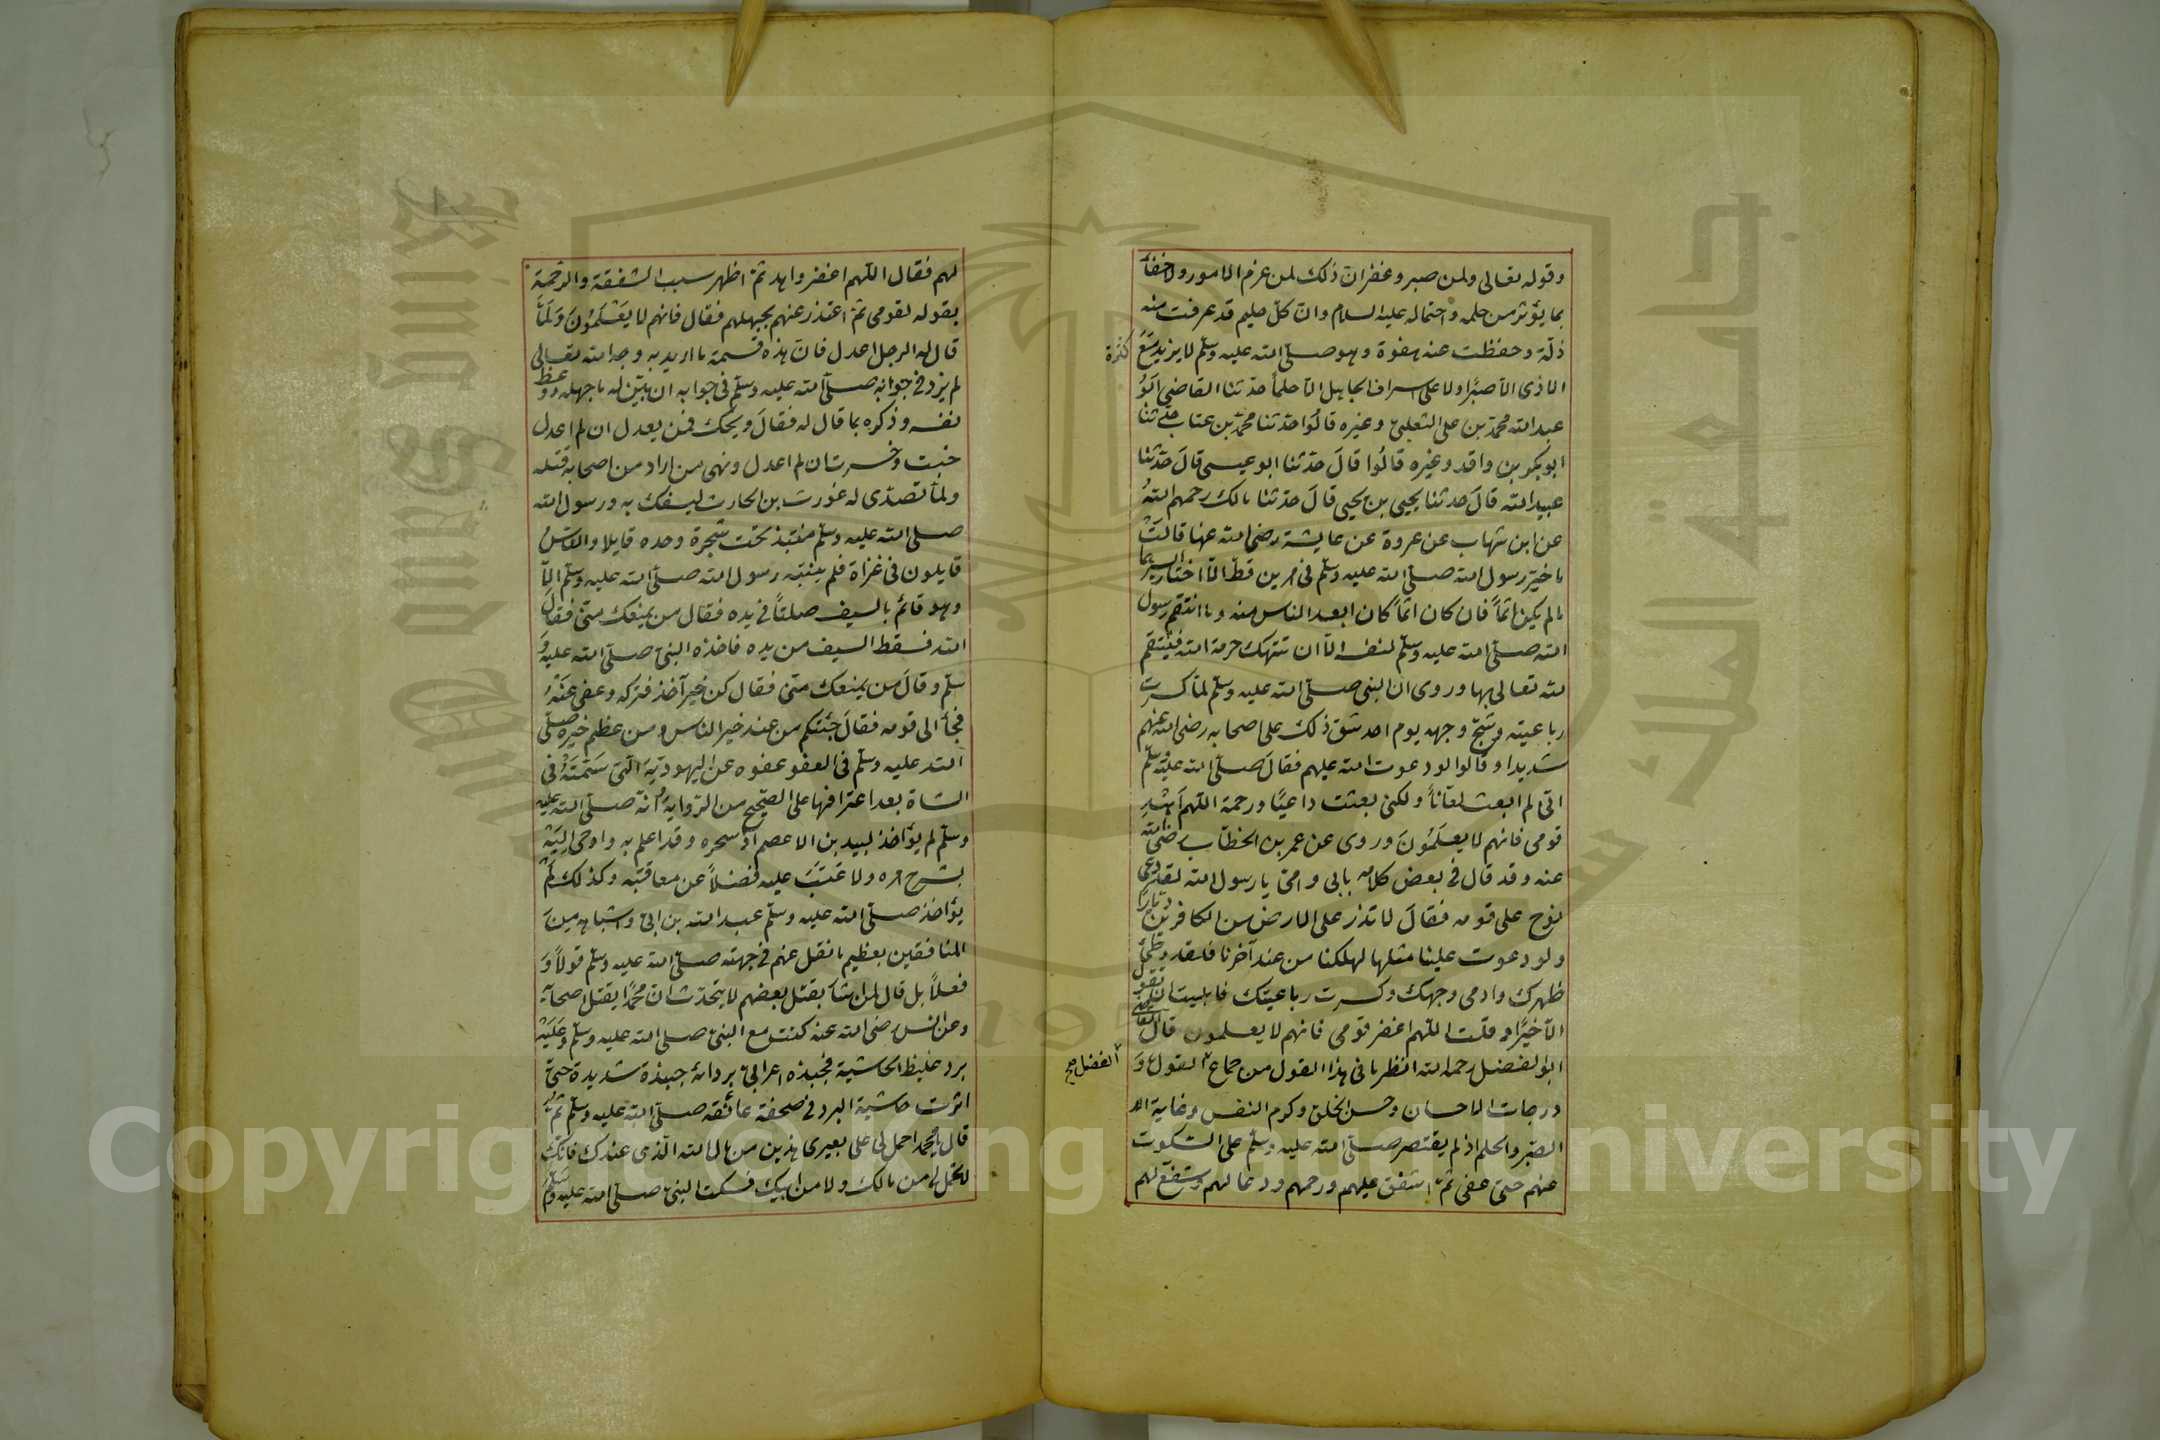 وقوله تعالى ولمن صبر وغفر ان ذلك لمن عزم الامور ولا خفأ
بما يؤثر من حلمه واحتماله عليه السلام وان كلّ حليم قد عرفت منه
ذلّة وحفظت عنه هفوة وهو صلّى الله عليه وسلّم لا يزيد مَعَ كثرة
الاذى الّا صبرًا ولا على اسراف الجاهل الّا حلماً حدّثنا القاضي ابوُ
عبد الله محمّد بن على الثعلبىّ وغيره قالُوا حدّثنا محمّد بن عتاب حدّثنا
ابو بكر بن واقد وغيره قالُوا قالَ حدّثنا ابو عيسى قالَ حدّثنا
عبيد الله قالَ حدثنا يحيى بن يحيى قالَ حدّثنا مالك رحمهم اللهُ
عن ابن شهاب عن عروة عن عايشة رضى الله عنها قالَتْ
ما خيّر رسول الله صلّى الله عليه وسلّم فى امرين قطّ الّا اختار ايسرهما
ما لم يكن اثمًا فان كان اثمًا كان ابعد الناس منه وما انتقم رسول
الله صلّى الله عليه وسلّم لنفسه الّا ان تنتهك حرمة الله فينتقم
لله تعالى بها وروى انّ النبى صلّى الله عليه وسلّم لمّا كسرت
رباعيته وشجّ وجهه يوم احد شق ذلك على اصحابه رضى الله عنهم
شديدا وقالوا لو دعوت الله عليهم فقالَ صلّى الله عليه وسلّم
انّى لم ابعث لعّاناً ولكنى بعثت داعيًا ورحمة اللّهم اهْدِ
قومى فانهم لا يعلَمُونَ وروى عن عمر بن الخطّاب رضى الله
عنه وقد قال فى بعض كلامه بابى وامىّ يا رسول الله لقد دعى
نوح على قومه فقالَ لا تذر على الارض من الكافرين ديّارًا
ولو دعوت علينا مثلها لهلكنا من عند آخرنا فلقد وطئ
ظهرك وادمى وجهك وكسرت رباعيتك فابيت ان تقول
الّا خيرًا وقلت اللّهم اغفر قومى فانهم لا يعلمون قال القاضى
ابو الفضل رحمه الله انظر ما فى هذا القول من جماع الفضل صح القول وَ
درجات الاحسان وحسن الخلق وكرم النفس وغاية الا
الصّبر والحلم اذ لم يقتصر صلّى الله عليه وسلّم على السّكوت
عنهم حتىّ عفى ثمّ اشفق عليهم ورحمهم ودعا لهم وشفع لهم
لهم فقال اللّهم اغفر واهد ثمّ اظهر سبب الشفقة والرّحمة
بقوله لقومى ثمّ اعتذر عنهم بجهلهم فقال فانهم لا يَعْلَمُونَ وَلَمَّا
قال له الرجل اعدل فانّ هذه قسمة ما اريد به وجه الله تعالى
لم يزد فى جوابه صلّى الله عليه وسلّم فى جوابه ان بيّن له ما جهله ووعظ
نفسه وذكره بما قال له فقالَ ويحك فمن يعدل ان لم اعدل
خبت وخسرت ان لم اعدل ونهى من اراد من اصحابه قتله
ولمّا تصدّى له غورث بن الحارث ليفتك به ورسول الله
صلى الله عليه وسلّم منتبذ تحت شجرة وحده قايلا والنّاسُ
قايلون فى غزاة فلم ينتبه رسول الله صلّى الله عليه وسلّم الّا
وهو قائم بالسيف صلتًا فى يده فقال من يمنعك منّى فقال
الله فسقط السيف من يده فاخذه النبىّ صلّى الله عليه وَ
سلّم وقالَ من يمنعك منّى فقال كن خير آخذ فتركه وعفى عَنْهُ
فجأ الى قومه فقالَ جئتكم من عند خير الناس ومن عظيم خيره صلّى
الله عليه وسلّم فى العفو عفوه عن اليهوديّة الّتى سَمَّتهُ فى
الشاة بعد اعترافها على الصّحيح من الرّواية وانّه صلّى الله عليه
وسلّم لم يؤاخذ لبيد بن الاعصم اذ سحره وقد اعلم به واوحى الَيْهِ
بشرح امره ولا عَتَبَ عليه فضلاً عن معاقبته وكذلك لم
يؤاخذ صلّى الله عليه وسلّم عبد الله بن ابىّ واشباهه مِنَ
المنافقين بعظيم ما نقل عنهم فى جهته صلّى الله عليه وسلّم قولاً وَ
فعلاً بل قال لمن اشار بقتل بعضهم لا يتحدّث ان محمّدًا يقتل اصحابه
وعن انس رضى الله عنه كنت مع النبىّ صلى الله عليه وسلّم وعَلَيْهِ
برد غليظ الحاشية فجبذه اعرابىّ بردائه جبذة شديدة حتىّ
اثرت حاشية البرد فى صفحة عاتقه صلّى الله عليه وسلّم ثمّ
قال يا محمد احمل لى على بعيرى هذين من مال الله الّذى عندك فانّك
لا تحمل لى من مالك ولا من مال ابيك فسكت النبىّ صلّى الله عليه وسلّم
Copyright © King Saud University